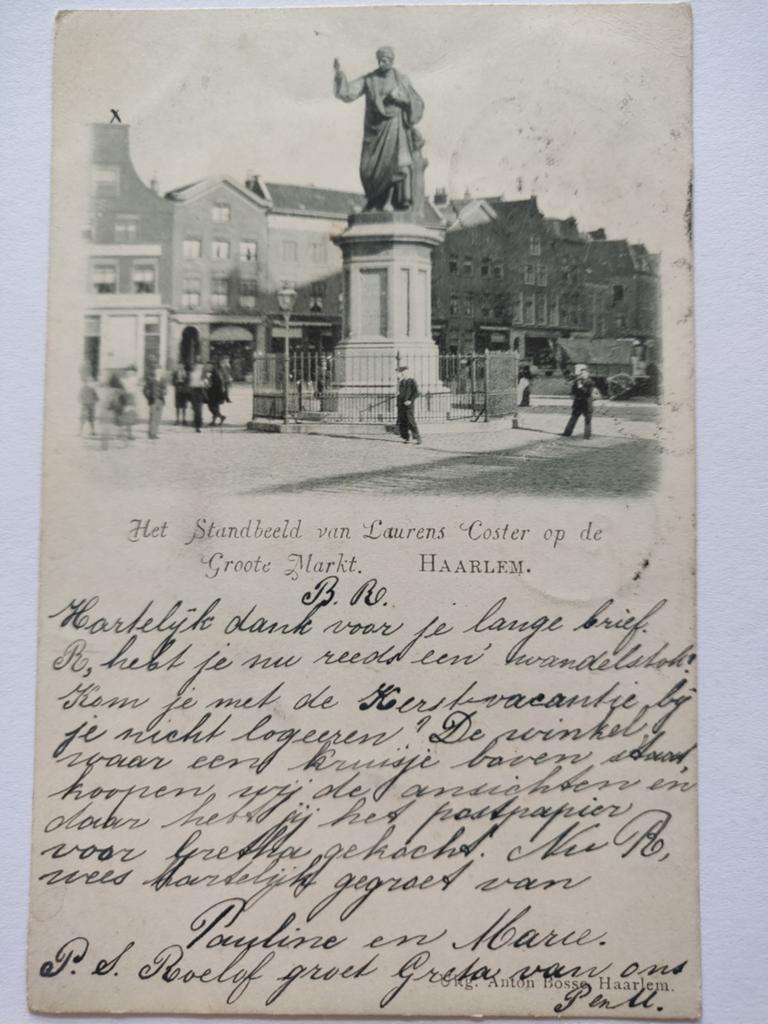 x
Het Standbeeld van Laurens Coster op de
Groote Markt. HAARLEM.
B. R.
Hartelijk dank voor je lange brief.
R, hebt je nu reeds een wandelstok?
Kom je met de Kerstvacantie bij
je nicht logeeren? De winkel,
waar een kruisje boven staat,
koopen wij de ansichten en
daar hebt jij het postpapier
voor Gretha gekocht. Nu R,
wees hartelijk gegroet van
Pauline en Marie.
P. S. Roelof groet Greta van ons
Uitg. Anton Bosse Haarlem.
P en M.